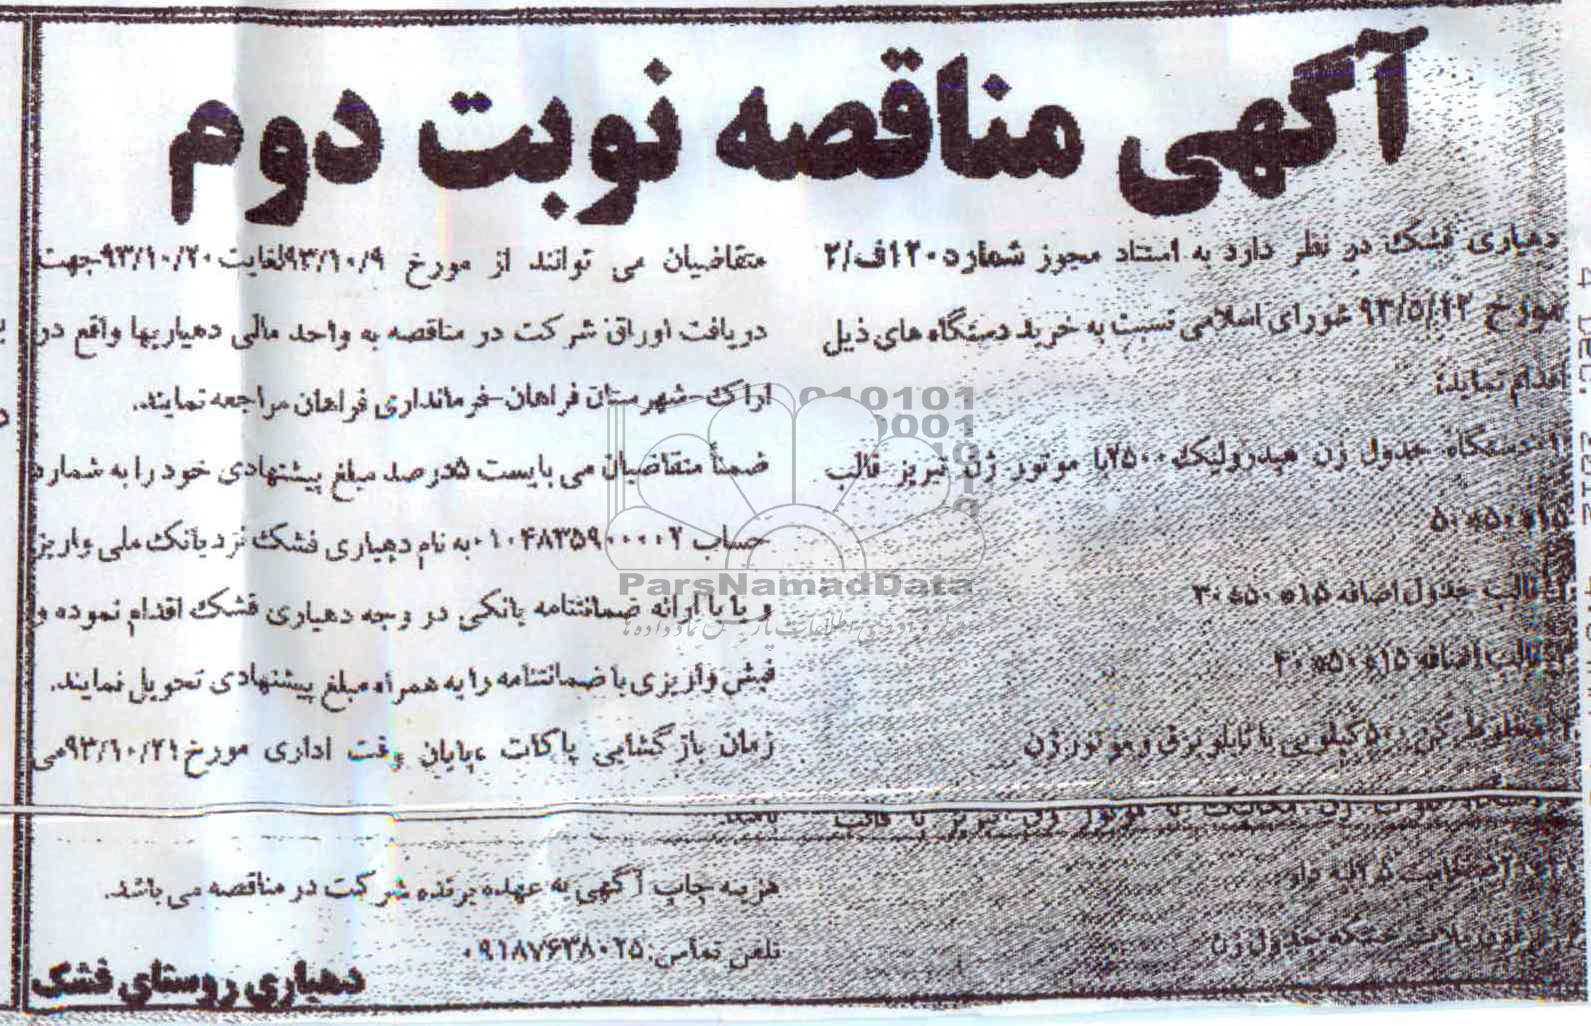 آگهی مناقصه نوبت دوم
دهیاری فشک در نظر دارد به استناد مجوز شماره ۱۲۰ف/۲
مورخ ۹۳/۵/۱۲ شورای اسلامی نسبت به خرید دستگاه های ذیل
اقدام نماید:
۱-دستگاه جدول زن هیدرولیک ۲۵۰۰با موتور ژن تبریز قالب
۵۰*۵۰*۱۵
قالب جدول اضافه ۱۵*۵۰*۳۰
۳-قالب اضافه ۱۵*۵۰*۴۰
مخلوط کن ۵۰۰ کیلویی با تابلو برق و موتور ژن
مکانیک با موتور ژن تبریز با قالب
ضخامت ۲٫۵ لبه دار
جدول زن
متقاضیان می توانند از مورخ ۹۳/۱۰/۹لغایت۹۳/۱۰/۲۰جهت
دریافت اوراق شرکت در مناقصه به واحد مالی دهیاریها واقع در
اراک-شهرستان فراهان-فرمانداری فراهان مراجعه نمایند.
ضمناً متقاضیان می بایست ۵درصد مبلغ پیشنهادی خود را به شماره
حساب ۰۱۰۴۸۳۵۹۰۰۰۰۲به نام دهیاری فشک نزد بانک ملی واریز
و یا با ارائه ضمانتنامه بانکی در وجه دهیاری فشک اقدام نموده و
فیش واریزی یا ضمانتنامه را به همراه مبلغ پیشنهادی تحویل نمایند.
زمان بازگشایی پاکات ،پایان وقت اداری مورخ۹۳/۱۰/۲۱می
باشد.
هزینه چاپ آگهی به عهده برنده شرکت در مناقصه می باشد.
تلفن تماس:۰۹۱۸۷۶۳۸۰۲۵
دهیاری روستای فشک
ParsNamadData